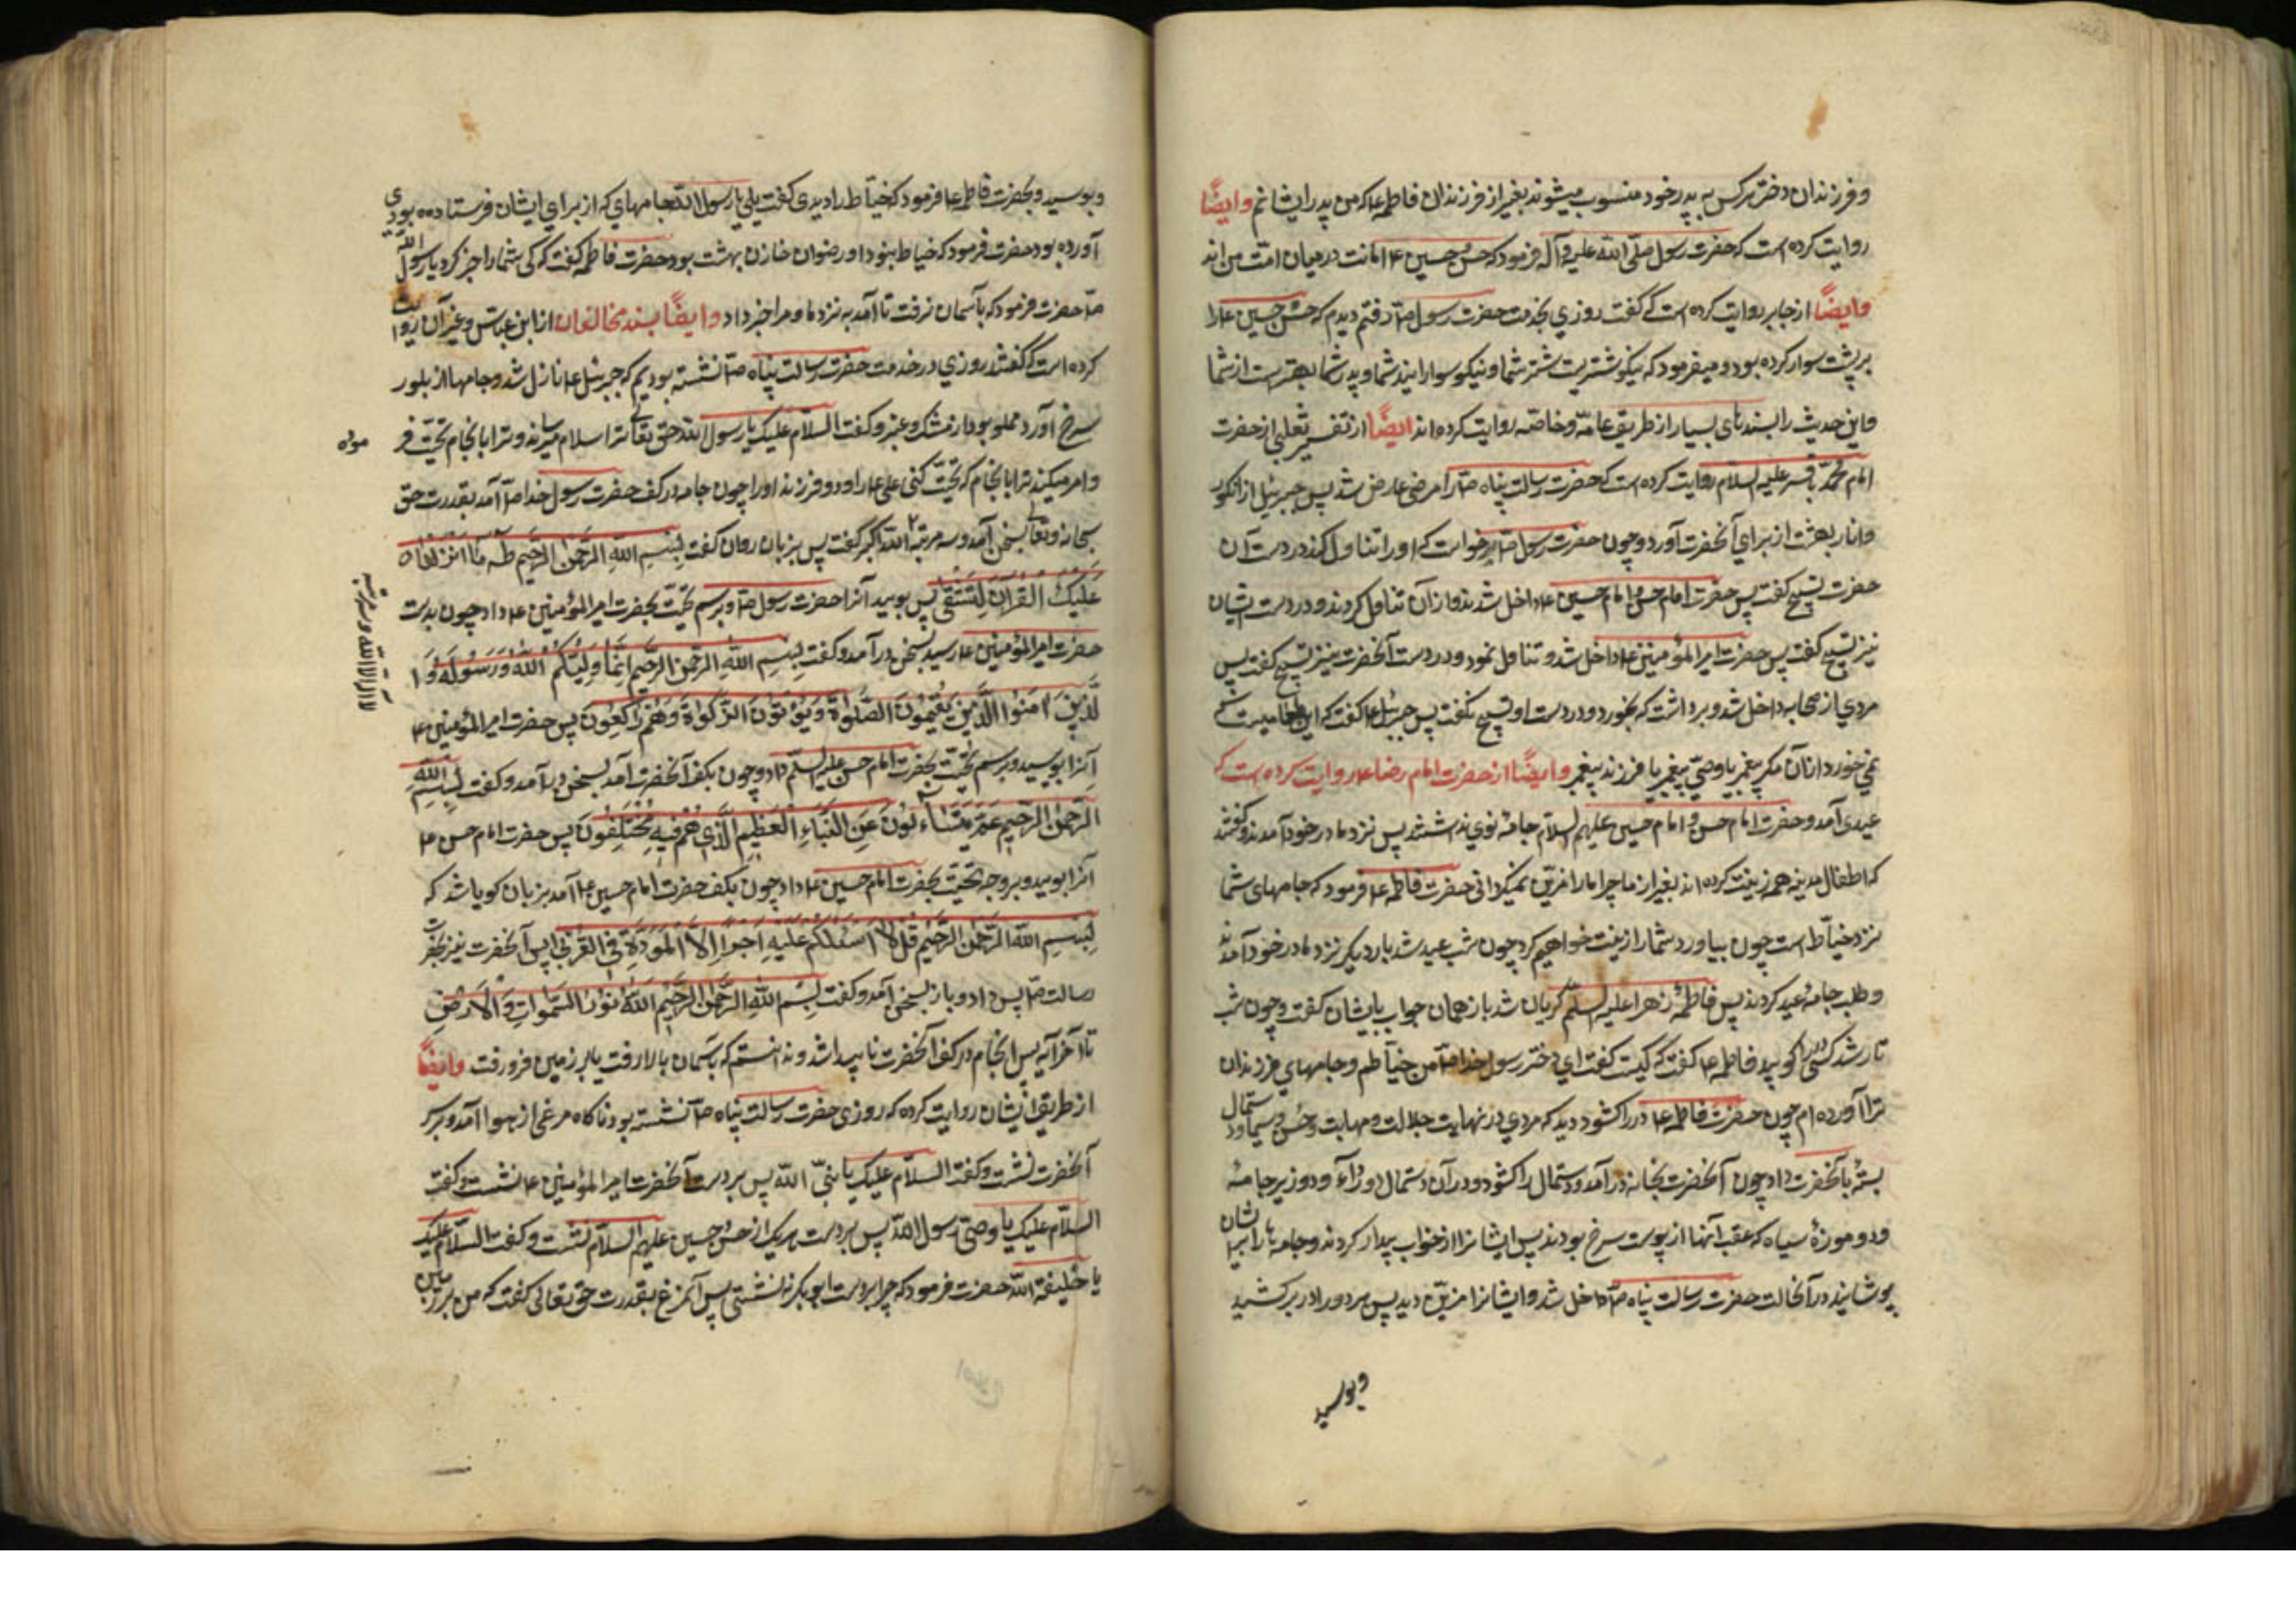 و فرزندان دختر هر کس به پدر خود منسوب میشوند بغیر از فرزندان فاطمه ع که من پدر ایشانم وایضًا
روایت کرده است که حضرت رسول صلّی الله علیه و آله فرمود که حسن و حسین ع امانت در میان امّت من اند
وایضًا از جابر روایت کرده است که گفت روزی بخدمت حضرت رسول ص رفتم دیدم که حسن و حسین ع را
بر پشت سوار کرده بود و میفرمود که نیکو شتریست شتر شما و نیکو سوارانید شما و پدر شما بهتر است از شما
و این حدیث را بسندهای بسیار از طریق عامّه و خاصّه روایت کرده اند ایضًا از تفسیر ثعلبی از حضرت
امام محمّد باقر علیه السلام روایت کرده است که حضرت رسالت پناه ص را مرضی عارض شد پس جبرئیل از انگور
و انار بهشت از برای آنحضرت آورد و چون حضرت رسول ص خواست که او را تناول کند در دست آن
حضرت تسبیح گفت پس حضرت امام حسن و امام حسین ع داخل شدند و از آن تناول کردند و در دست ایشان
نیز تسبیح گفت پس حضرت امیر المؤمنین ع داخل شد و تناول نمود و در دست آنحضرت نیز تسبیح گفت پس
مردی از صحابه داخل شد و برداشت که بخورد در دست او تسبیح نگفت پس جبرئیل ع گفت که این طعامیست که
نمی خورد از آن مگر پیغمبر یا وصیّ پیغمبر یا فرزند پیغمبر وایضًا از حضرت امام رضا ع روایت کرده است که
عیدی آمد و حضرت امام حسن و امام حسین علیهم السلام جامهٔ نوی نداشتند پس نزد مادر خود آمدند و گفتند
که اطفال مدینه همه زینت کرده اند بغیر از ما چرا ما را مزیّن نمیگردانی حضرت فاطمه ع فرمود که جامهای شما
نزد خیّاط است چون بیاورد شما را زینت خواهیم کرد چون شب عید شد بار دیگر نزد مادر خود آمدند
و طلب جامهٔ عید کردند پس فاطمهٔ زهرا علیه السلم گریان شد باز همان جواب بایشان گفت و چون شب
تار شد کسی در را کوبید فاطمه ع گفت که کیست گفت ای دختر رسول خدا ص من خیّاطم و جامهای فرزندان
ترا آورده ام چون حضرت فاطمه ع در را کشود دید که مردی در نهایت جلالت و مهابت و حسن و سیما و دستمال
بستهٔ بآنحضرت داد چون آنحضرت بخانه در آمد و دستمال را کشود در آن دستمال دو ردآء و دو زیر جامه
و دو موزهٔ سیاه که عقب آنها از پوست سرخ بودند پس ایشانرا از خواب بیدار کردند و جامه ها را بر ایشان
پوشانید در آنحالت حضرت رسالت پناه ص داخل شد و ایشانرا مزیّن دید پس هر دو را در بر کشید
و بوسید
و بوسید و بحضرت فاطمه ع فرمود که خیّاط را دیدی گفت بلی یا رسول الله جامهای که از برای ایشان فرستاده بودی
آورده بود حضرت فرمود که خیاط نبود او رضوان خازن بهشت بود حضرت فاطمه گفت که کی شما را خبر کرد یا رسول الله
ص حضرت فرمود که بآسمان نرفت تا آمد به نزد ما و مرا خبر داد وایضًا بسند مخالفان از ابن عباس و غیر آن روایت
کرده است که گفتند روزی در خدمت حضرت رسالت پناه ص نشسته بودیم که جبرئیل ع نازل شد و جامها از بلور
سرخ آورد مملو بود از مشک و عنبر و گفت السلام علیک یا رسول الله حق تعالی ترا سلام میرساند و ترا باین جام تحیّت فر
موده
و امر میکند ترا باینجام که تحیّت کنی علی ع را و دو فرزند او را چون جام در کف حضرت رسول خدا ص آمد بقدرت حق
سبحانه و تعالی بسخن آمد و سه مرتبه الله اکبر گفت پس بزبان روان گفت بسم الله الرحمن الرحیم طه ما انزلناه
لا اله الا الله و سه مرتبه
علیک القرآن لتشقی پس بوسید آنرا حضرت رسول ص و برسم تحیّت بحضرت امیر المؤمنین ع داد چون بدست
حضرت امیر المؤمنین ع رسید بسخن در آمد و گفت بسم الله الرحمن الرحیم انّما ولیّکم الله و رسوله و ا
لّذین آمنوا الّذین یقیمون الصلوة و یؤتون الزکواة و هم راکعون پس حضرت امیر المؤمنین ع
آنرا بوسید و برسم تحیّت بحضرت امام حسن علیه السلم داد و چون بکف آنحضرت آمد بسخن در آمد و گفت بسم الله
الرحمن الرحیم عمّ یتساءلون عن النباء العظیم الّذی هم فیه مختلفون پس حضرت امام حسن ع
آنرا بوسید و بر وجه تحیّت بحضرت امام حسین ع داد چون بکف حضرت امام حسین ع آمد بزبان گویا شد که
بسم الله الرحمن الرحیم قل لا اسئلکم علیه اجرا الا المودّة فی القربی پس آنحضرت نیز بحضرت
رسالت ص پس داد و باز بسخن آمد و گفت بسم الله الرحمن الرحیم الله نور السموات و الارض
تا آخر آیه پس آنجام در کف آنحضرت ناپیدا شد و ندانستم که بآسمان بالا رفت یا بر زمین فرو رفت وایضًا
از طریق ایشان روایت کرده که روزی حضرت رسالت پناه ص نشسته بود ناگاه مرغی از هوا آمد و بر سر
آنحضرت نشست و گفت السلام علیک یا نبیّ الله پس بر دست آنحضرت امیر المؤمنین ع نشست و گفت
السلام علیک یا وصیّ رسول الله پس بر دست هر یک از حسن و حسین علیهم السلام نشست و گفت السلام علیک
یا خلیفة الله حضرت فرمود که چرا بر دست ابو بکر نه نشستی پس آنمرغ بقدرت حق تعالی گفت که من بر زمین